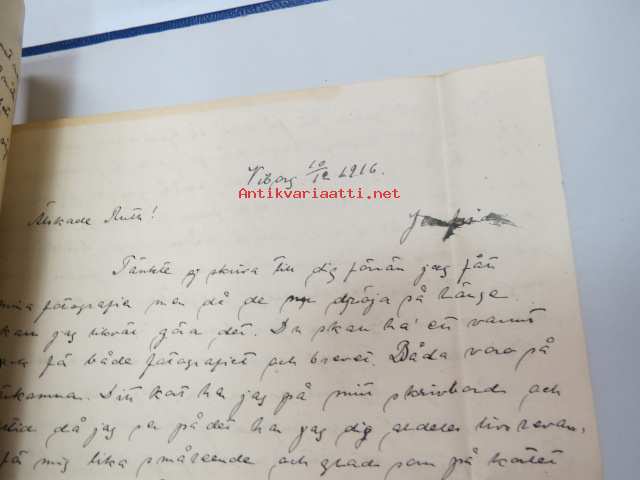 Viborg 10/12 1916.
Antikvariaatti.net
Älskade Ruth!
Tänkte ej skriva till dig förrän jag fått
mina fotografier men då de nu dröja så länge
kan jag likväl göra det. Du skall ha ett varmt
tack för både fotografiet och brevet. Båda voro så
välkomna. Ditt kort har jag på mitt skrivbord och
alltid då jag ser på det har jag dig alldeles livslevan-
för mig lika småleende och glad som på kortet